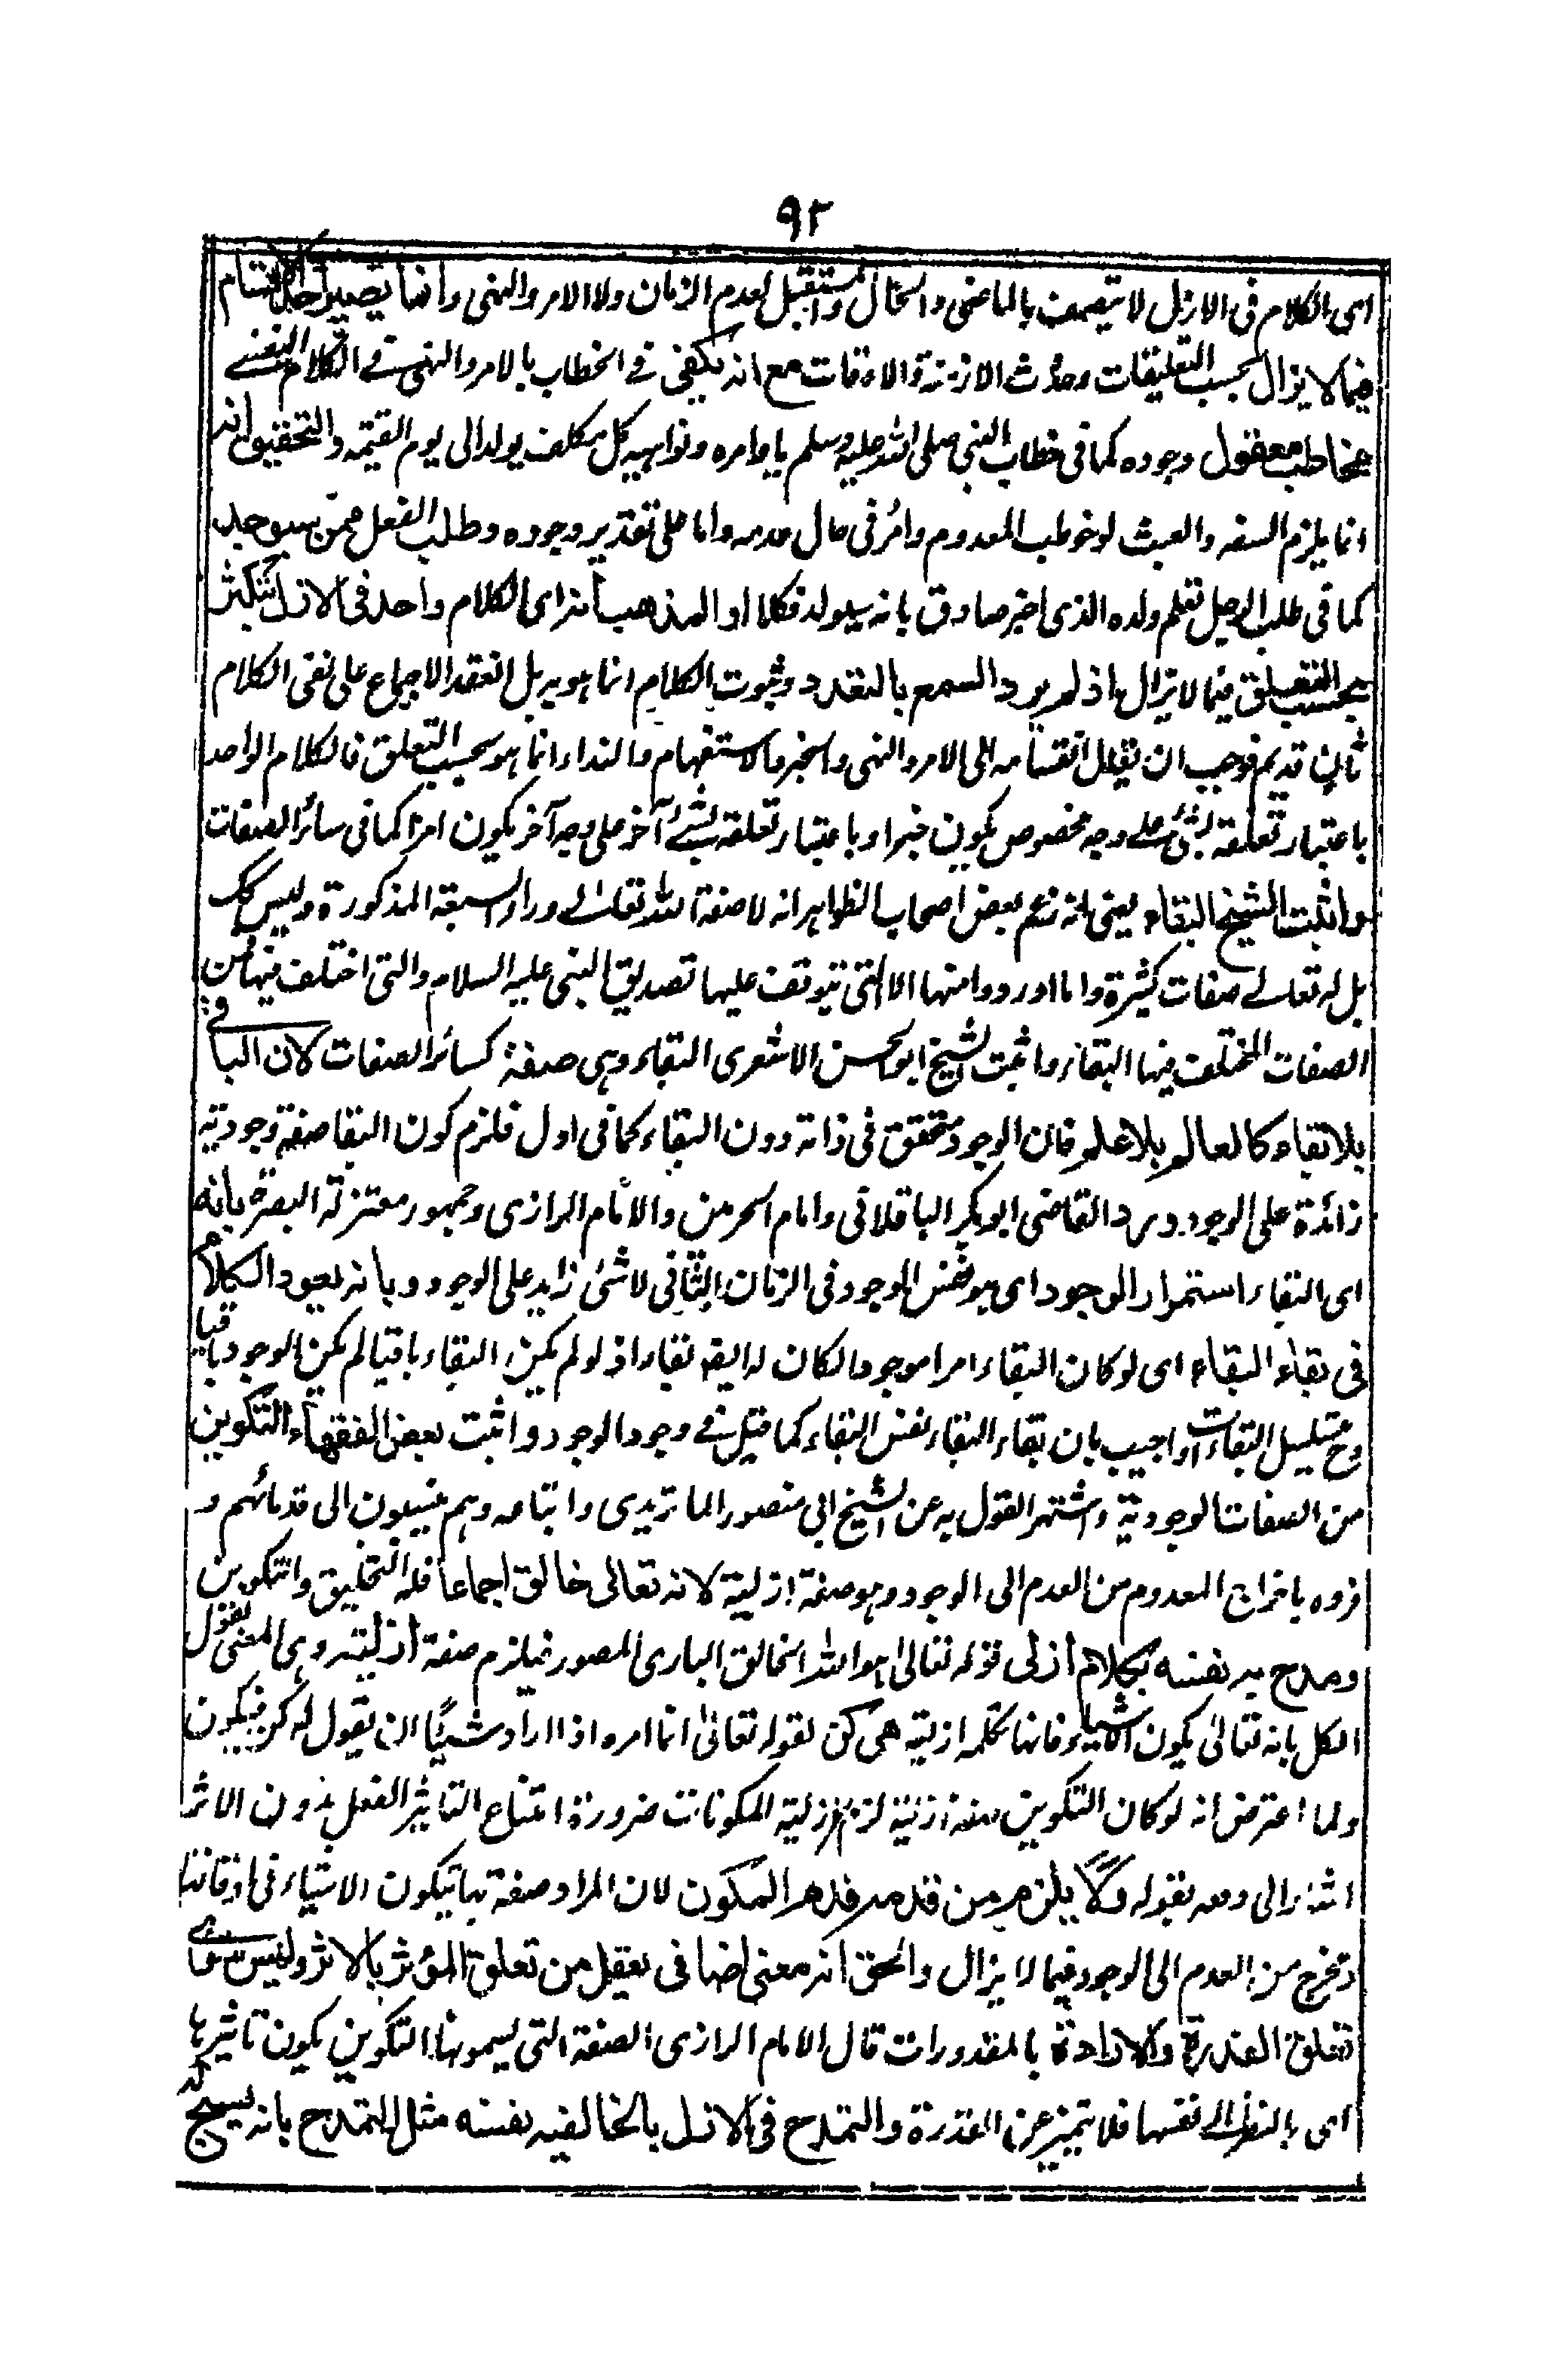 ٩٢
اى الكلام فى الازل لا يتصف بالماضى والحال والمستقبل لعدم الزمان ولا الامر والنهى وانما يصير احد الاقسام
فيما لا يزال بحسب التعليقات وحدوث الازمنة والاوقات مع انه يكفى فى الخطاب بالامر والنهى فى الكلام النفسے
مخاطب معقول وجوده كما فى خطاب النبى صلى الله عليه وسلم باوامره ونواهيه كل مكلف يولد الى يوم القيمة والتحقيق انه
انما يلزم السفه والعبث لو خوطب المعدوم وامر فى حال عدمه واما على تقدير وجوده وطلب الفعل ممن سيوجد
كما فى طلب الرجل تعلم ولده الذى اخبر صادق بانه سيولد فكلا او المذهب انه اى الكلام واحد فى الازل يتكثر
بحسب التعلق فيما لا يزال اذ لم يرد السمع بالتعدد وثبوت الكلام انما هو به بل انعقد الاجماع على نفى الكلام
ثان قديم فوجب ان يقال انقسامه الى الامر والنهى والخبر والاستفهام والنداء انما هو بحسب التعلق فالكلام الواحد
باعتبار تعلقه بشئ على وجه مخصوص يكون خبرا وباعتبار تعلقه بشئ آخر على وجه آخر يكون امرا كما فى سائر الصفات
واثبت الشيخ البقاء يعنى انه زعم بعض اصحاب الظواهر انه لا صفة الله تعالے وراء السبعة المذكورة وليس كك
بل له تعالے صفات كثيرة وانما اوردوا منها الا التى يتوقف عليها تصديق النبى عليه السلام والتى اختلف فيها فمن
الصفات المختلف فيها البقاء واثبت الشيخ ابو الحسن الاشعرى البقاء وهى صفة كسائر الصفات لان الباقے
بلا بقاء كالعالم بلا علم فان الوجود متحقق فى ذاته دون البقاء كما فى اول فلزم كون البقا صفة وجودية
زائدة على الوجود ورد القاضى ابو بكر الباقلانى وامام الحرمين والامام الرازى وجمهور معتزلة البصرة بانه
اى البقاء استمرار الوجود اى هو نفس الوجود فى الزمان الثانى لا شئ زايد على الوجود وبانه يعود الكلام
فى بقاء البقاء اى لو كان البقاء امرا موجودا لكان له ايضه بقاء اذ لو لم يكن البقاء باقيا لم يكن الوجود باقيا
وح يتسلسل البقاءات واجيب بان بقاء البقاء نفس البقاء كما قيل فے وجود الوجود واثبت بعض الفقهاء التكوين
من الصفات الوجودية واشتهر القول به عن الشيخ ابى منصور الماتريدى واتباعه وهم ينسبون الى قدمائهم و
فسروه باخراج المعدوم من العدم الى الوجود وهو صفة ازلية لانه تعالى خالق اجماعا فله التخليق والتكوين
ومدح به نفسه بكلام ازلى قوله تعالى هو الله الخالق البارئ المصور فيلزم صفة ازلية وهى المعنى لقول
الكل بانه تعالى يكون الاشياء فانها بكلمة ازلية هى كن لقوله تعالى انما امره اذا اراد شيئا ان يقول له كن فيكون
ولما اعترض انه لو كان التكوين صفة ازلية لزم ازلية المكونات ضرورة امتناع التاثير الفعل بدون الاثر
اشار الى دفعه بقوله ولا يلزم من قدمه قدم المكون لان المراد صفة بها يتكون الاشياء فى اوقاتها
وتخرج من العدم الى الوجود فيما لا يزال والحق انه معنى اضافى يعقل من تعلق المؤثر بالاثر وليس سوى
تعلق القدرة والارادة بالمقدورات قال الامام الرازى الصفة التى يسمونها التكوين يكون تاثيرها
اى بالنظر الے نفسها فلا يتميز عن القدرة والتمدح فى الازل بالخالقية نفسه مثل التمدح بانه يسبح له